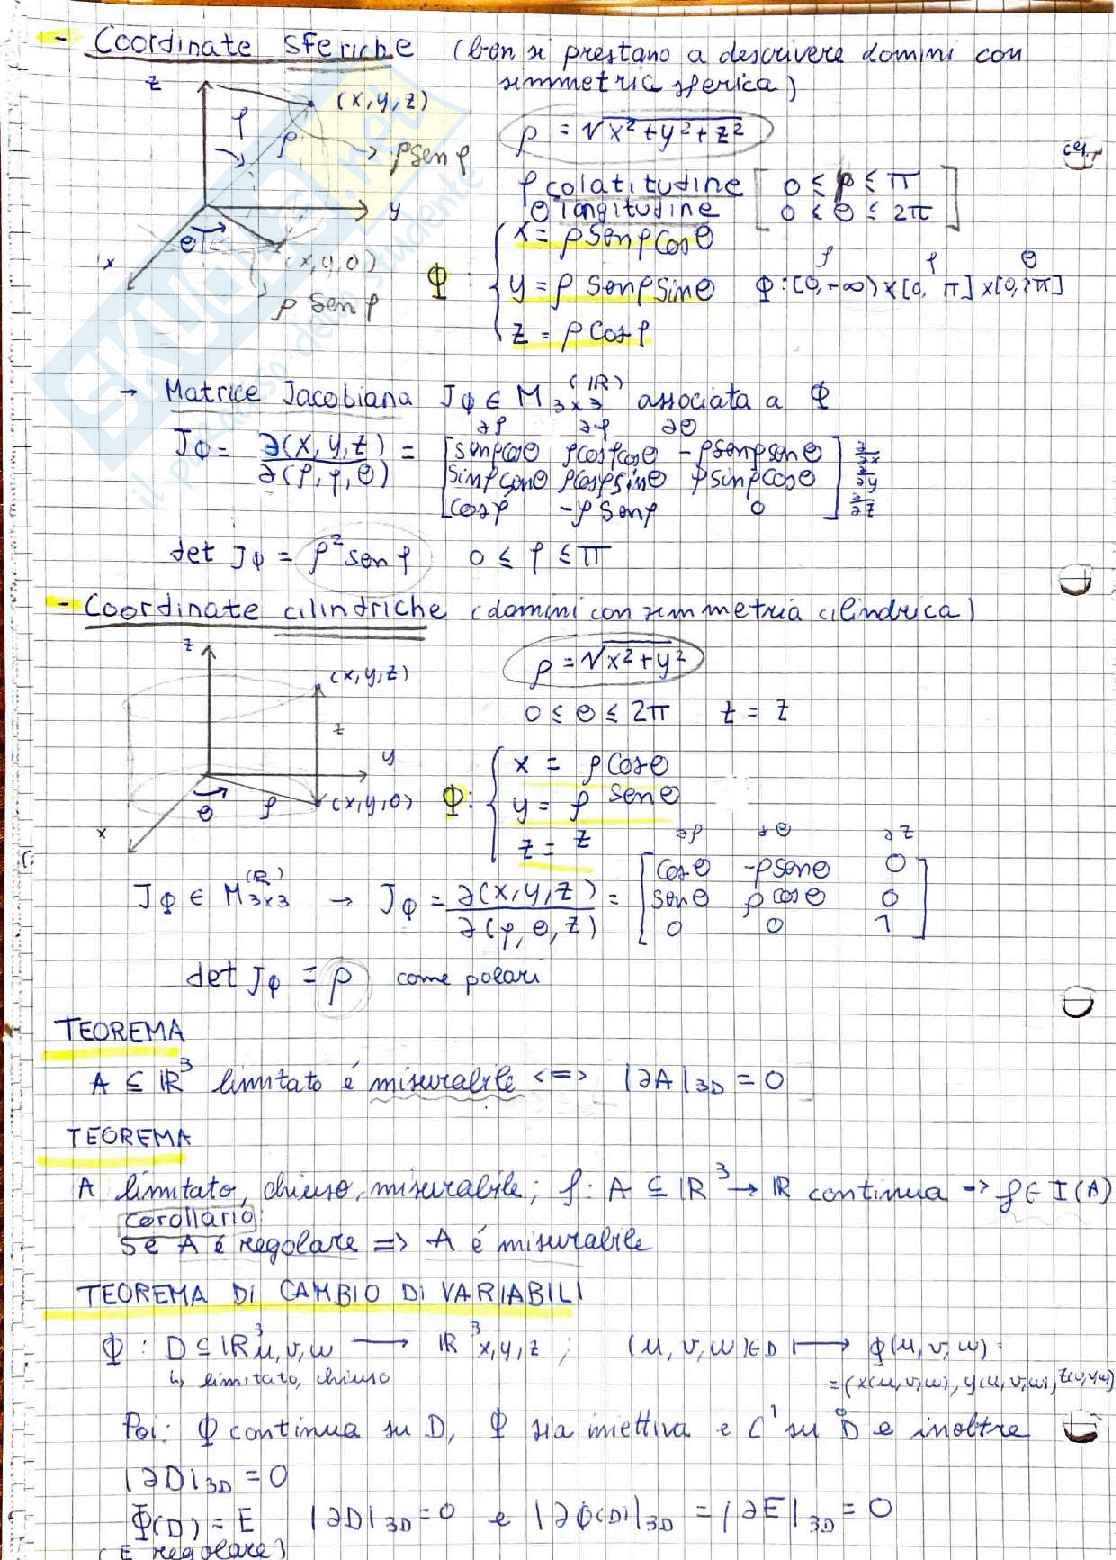 - Coordinate sferiche (ben si prestano a descrivere domini con
simmetria sferica)
z
(x,y,z)
φ
ρ
→ ρsenφ
y
θ
x
(x,y,0)
ρ senφ
ρ = √x²+y²+z²
φ colatitudine [ 0 ≤ φ ≤ π
θ longitudine 0 ≤ θ ≤ 2π ]
Φ: { x = ρ senφ cosθ
y = ρ senφ sinθ
z = ρ cosφ
ρ φ θ
Φ: [0,+∞) x [0, π] x [0, 2π]
→ Matrice Jacobiana JΦ ∈ M3x3 (R) associata a Φ
∂ρ ∂φ ∂θ
JΦ = ∂(x,y,z) / ∂(ρ,φ,θ) = [ senφcosθ ρcosφcosθ -ρsenφsenθ ] ∂/∂x
sinφsenθ ρcosφsinθ ρsinφcosθ ∂/∂y
cosφ -ρ senφ 0 ∂/∂z
det JΦ = ρ² senφ 0 ≤ φ ≤ π
- Coordinate cilindriche (domini con simmetria cilindrica)
z
(x,y,z)
z
y
θ
ρ
(x,y,0)
x
ρ = √x²+y²
0 ≤ θ ≤ 2π z = z
Φ: { x = ρ cosθ
y = ρ senθ
z = z
∂ρ ∂θ ∂z
JΦ ∈ M3x3 (R) → JΦ = ∂(x,y,z) / ∂(ρ,θ,z) = [ cosθ -ρsenθ 0
senθ ρcosθ 0
0 0 1 ]
det JΦ = ρ come polari
TEOREMA
A ⊆ R³ limitato é misurabile <=> |∂A|3D = 0
TEOREMA
A limitato, chiuso, misurabile; f: A ⊆ R³ → R continua => f ∈ I(A)
corollario:
Se A é regolare => A é misurabile
TEOREMA DI CAMBIO DI VARIABILI
Φ : D ⊆ R³u,v,w → R³x,y,z ; (u,v,w) ∈ D ↦ Φ(u,v,w) =
↳ limitato, chiuso
= (x(u,v,w), y(u,v,w), z(u,v,w))
Poi: Φ continua su D, Φ sia iniettiva e C¹ su D̊ e inoltre
|∂D|3D = 0
Φ(D) = E |∂D|3D = 0 e |∂Φ(D)|3D = |∂E|3D = 0
(E regolare)